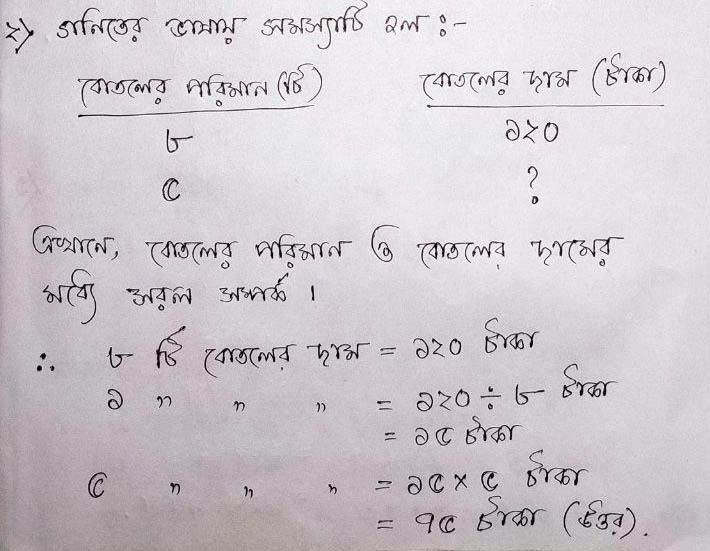 ২) গনিতের ভাষায় সমস্যাটি হল :-
বোতলের পরিমান (টি) বোতলের দাম (টাকা)
৮ ১২০
৫ ?
এখানে, বোতলের পরিমান ও বোতলের দামের
মধ্যে সরল সম্পর্ক ।
∴ ৮ টি বোতলের দাম = ১২০ টাকা
১ " " " = ১২০ ÷ ৮ টাকা
= ১৫ টাকা
৫ " " " = ১৫ × ৫ টাকা
= ৭৫ টাকা (উত্তর).